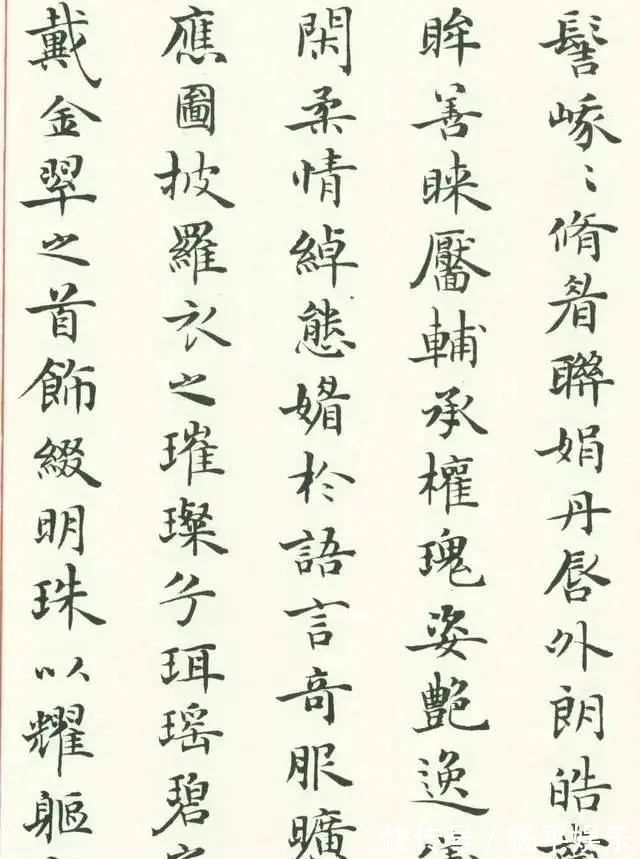 髻峨〻脩眉聯娟丹唇外朗皓
眸善睞靨輔承權瑰姿艷逸
閑柔情綽態媚於語言奇服曠
應圖披羅衣之璀璨兮珥瑤碧
戴金翠之首飾綴明珠以耀軀
快传号／畅平娱乐